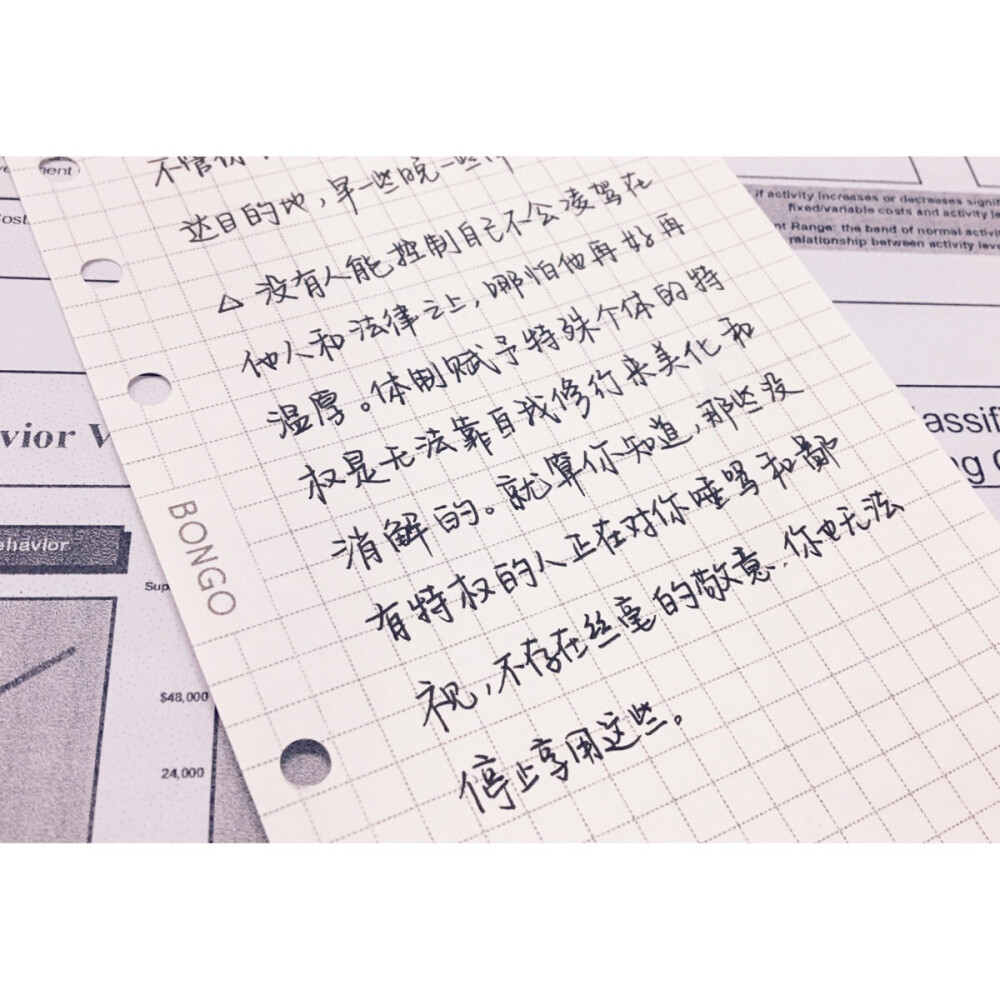 不管你
达目的地，早一些晚一些
△ 没有人能控制自己不会凌驾在
他人和法律之上，哪怕他再好再
温厚。体制赋予特殊个体的特
权是无法靠自我修行来美化和
消解的。就算你知道，那些没
有特权的人正在对你唾骂和鄙
视，不存在丝毫的敬意，你也无法
停止享用这些。
BONGO
ment
ost
vior V
ehavior
Sup
$48,000
24,000
if activity increases or decreases signif
fixed/variable costs and activity le
nt Range: the band of normal activit
relationship between activity leve
assif
ng